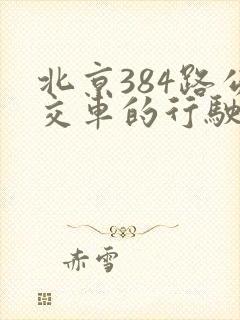 北京384路公
交车的行驶
赤雪